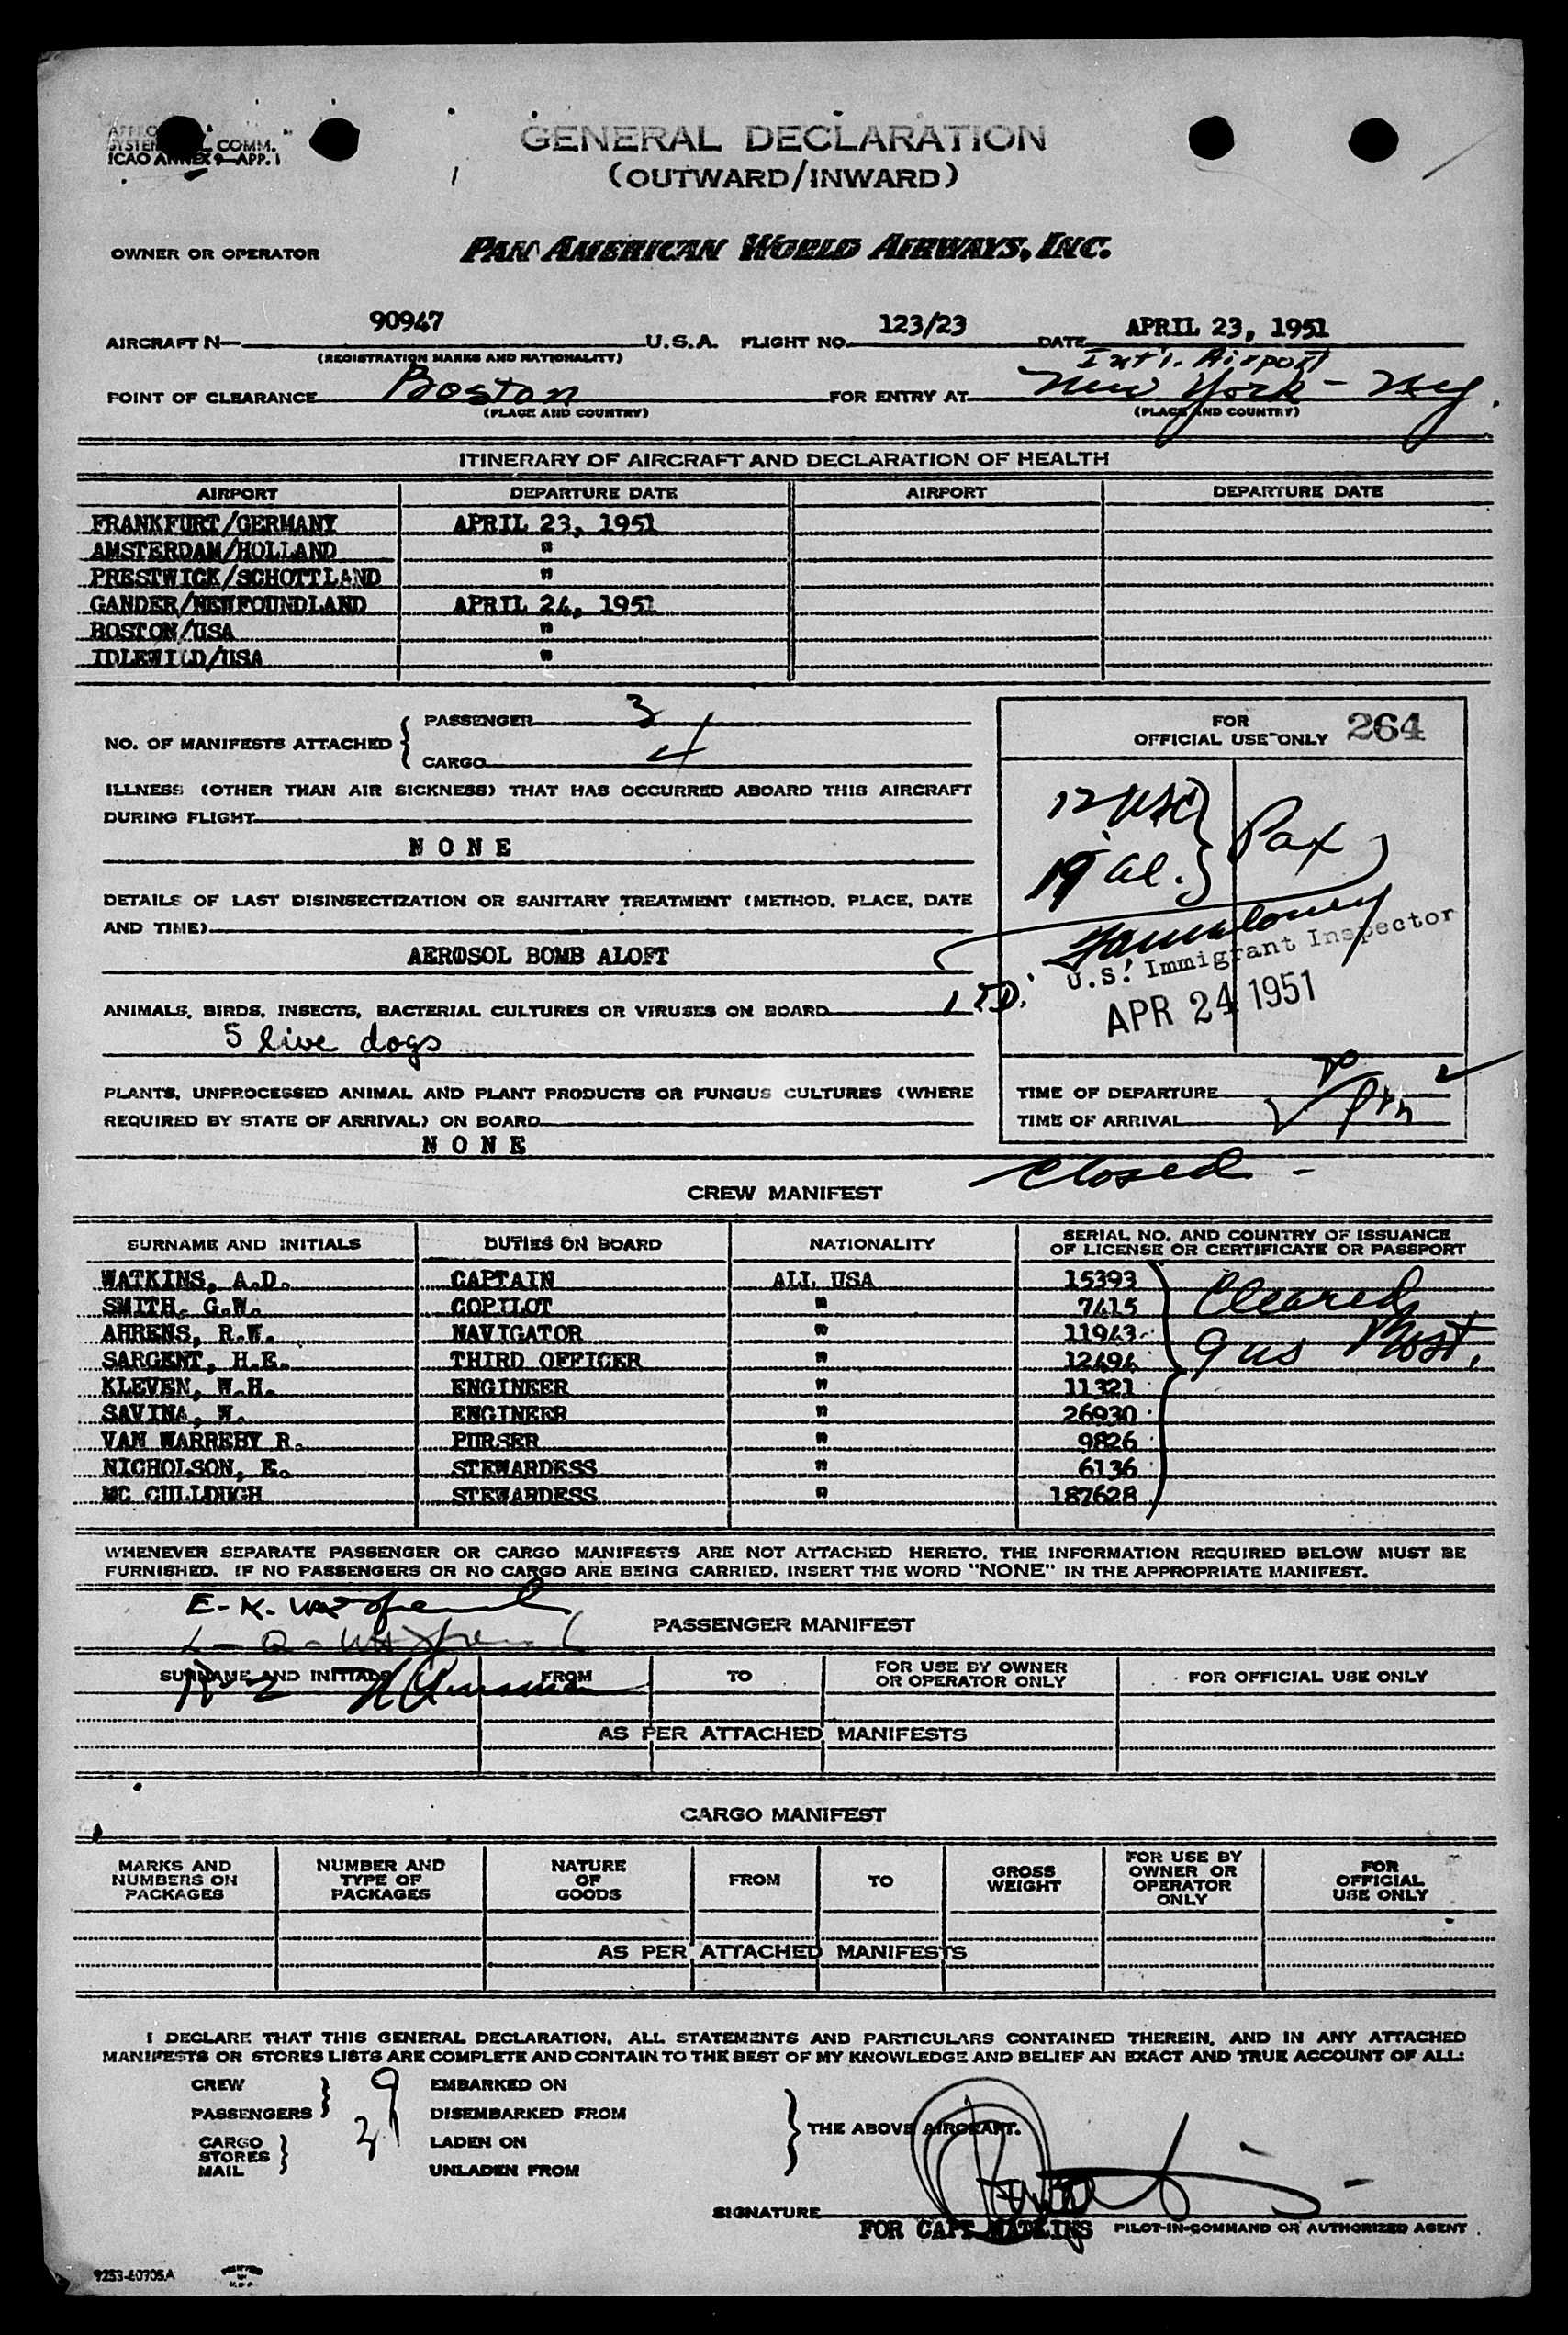 COMM.
ICAO ANNEX 9—APP. 1
GENERAL DECLARATION
(OUTWARD/INWARD)
OWNER OR OPERATOR PAN AMERICAN WORLD AIRWAYS, INC.
AIRCRAFT N— 90947 U.S.A. FLIGHT NO. 123/23 DATE APRIL 23, 1951
(REGISTRATION MARKS AND NATIONALITY)
Int'l. Airport
POINT OF CLEARANCE Boston FOR ENTRY AT New York - NY.
(PLACE AND COUNTRY) (PLACE AND COUNTRY)
ITINERARY OF AIRCRAFT AND DECLARATION OF HEALTH
AIRPORT DEPARTURE DATE AIRPORT DEPARTURE DATE
FRANKFURT/GERMANY APRIL 23, 1951
AMSTERDAM/HOLLAND "
PRESTWICK/SCHOTTLAND "
GANDER/NEWFOUNDLAND APRIL 24, 1951
BOSTON/USA "
IDLEWILD/USA "
NO. OF MANIFESTS ATTACHED { PASSENGER 3
CARGO 4
FOR
OFFICIAL USE ONLY 264
12 USC } Pax
19 al.
U.S. Immigrant Inspector
APR 24 1951
ILLNESS (OTHER THAN AIR SICKNESS) THAT HAS OCCURRED ABOARD THIS AIRCRAFT
DURING FLIGHT
N O N E
DETAILS OF LAST DISINSECTIZATION OR SANITARY TREATMENT (METHOD, PLACE, DATE
AND TIME)
AEROSOL BOMB ALOFT
ANIMALS, BIRDS, INSECTS, BACTERIAL CULTURES OR VIRUSES ON BOARD
5 live dogs
PLANTS, UNPROCESSED ANIMAL AND PLANT PRODUCTS OR FUNGUS CULTURES (WHERE
REQUIRED BY STATE OF ARRIVAL) ON BOARD
N O N E
TIME OF DEPARTURE
TIME OF ARRIVAL
Closed -
CREW MANIFEST
SURNAME AND INITIALS DUTIES ON BOARD NATIONALITY SERIAL NO. AND COUNTRY OF ISSUANCE
OF LICENSE OR CERTIFICATE OR PASSPORT
WATKINS, A.D. CAPTAIN ALL USA 15393 Cleared
SMITH, G.W. COPILOT " 7415
AHRENS, R.W. NAVIGATOR " 11943
SARGENT, H.E. THIRD OFFICER " 12494
KLEVEN, W.H. ENGINEER " 11321
SAVINA, W. ENGINEER " 26930
VAN WARREBY R. PURSER " 9826
NICHOLSON, E. STEWARDESS " 6136
MC CULLOUGH STEWARDESS " 187628
WHENEVER SEPARATE PASSENGER OR CARGO MANIFESTS ARE NOT ATTACHED HERETO, THE INFORMATION REQUIRED BELOW MUST BE
FURNISHED. IF NO PASSENGERS OR NO CARGO ARE BEING CARRIED, INSERT THE WORD "NONE" IN THE APPROPRIATE MANIFEST.
PASSENGER MANIFEST
SURNAME AND INITIALS FROM TO FOR USE BY OWNER
OR OPERATOR ONLY FOR OFFICIAL USE ONLY
AS PER ATTACHED MANIFESTS
CARGO MANIFEST
MARKS AND
NUMBERS ON
PACKAGES
NUMBER AND
TYPE OF
PACKAGES
NATURE
OF
GOODS
FROM
TO
GROSS
WEIGHT
FOR USE BY
OWNER OR
OPERATOR
ONLY
FOR
OFFICIAL
USE ONLY
AS PER ATTACHED MANIFESTS
I DECLARE THAT THIS GENERAL DECLARATION, ALL STATEMENTS AND PARTICULARS CONTAINED THEREIN, AND IN ANY ATTACHED
MANIFESTS OR STORES LISTS ARE COMPLETE AND CONTAIN TO THE BEST OF MY KNOWLEDGE AND BELIEF AN EXACT AND TRUE ACCOUNT OF ALL:
CREW 9 EMBARKED ON
PASSENGERS 31 DISEMBARKED FROM
THE ABOVE AIRCRAFT.
CARGO LADEN ON
STORES
MAIL UNLADEN FROM
SIGNATURE
FOR CAPT WATKINS PILOT-IN-COMMAND OR AUTHORIZED AGENT
9253-40705A
PRINTED
IN
U.S.A.